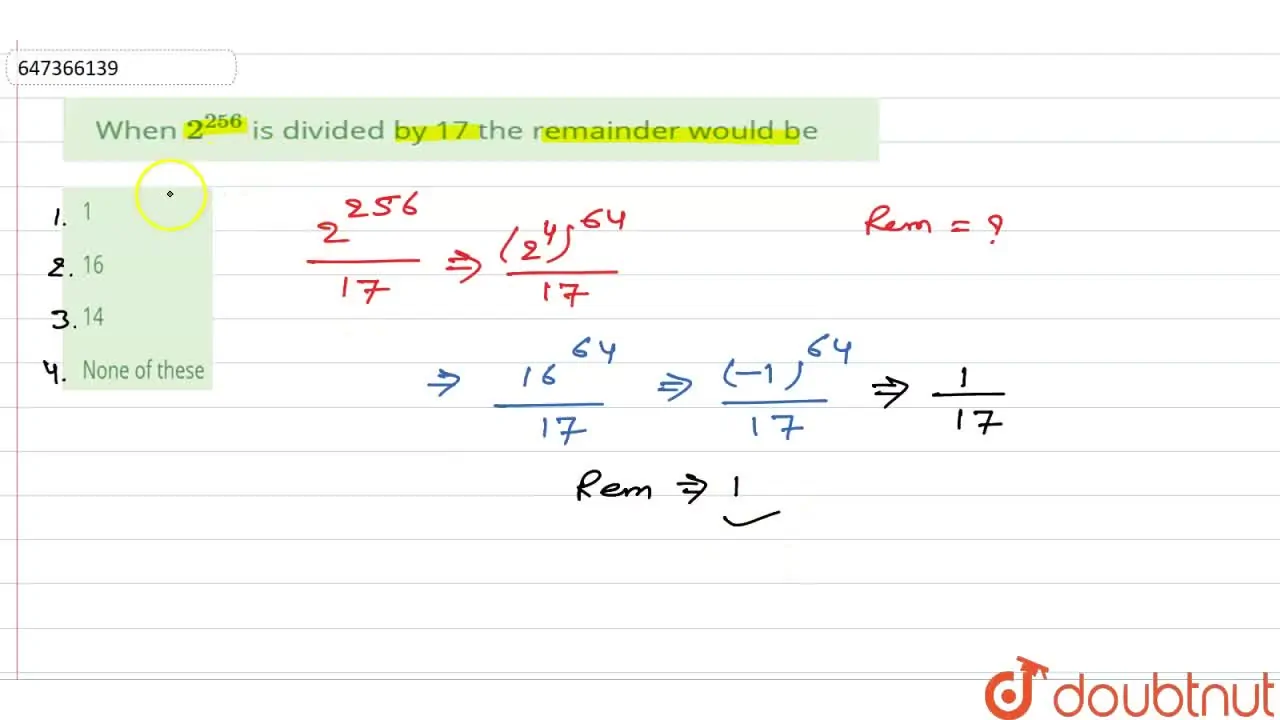 647366139
When 2^256 is divided by 17 the remainder would be
1. 1
2. 16
3. 14
4. None of these
2^256 / 17 ⇒ (2^4)^64 / 17
Rem = ?
⇒ 16^64 / 17 ⇒ (-1)^64 / 17 ⇒ 1 / 17
Rem ⇒ 1
doubtnut